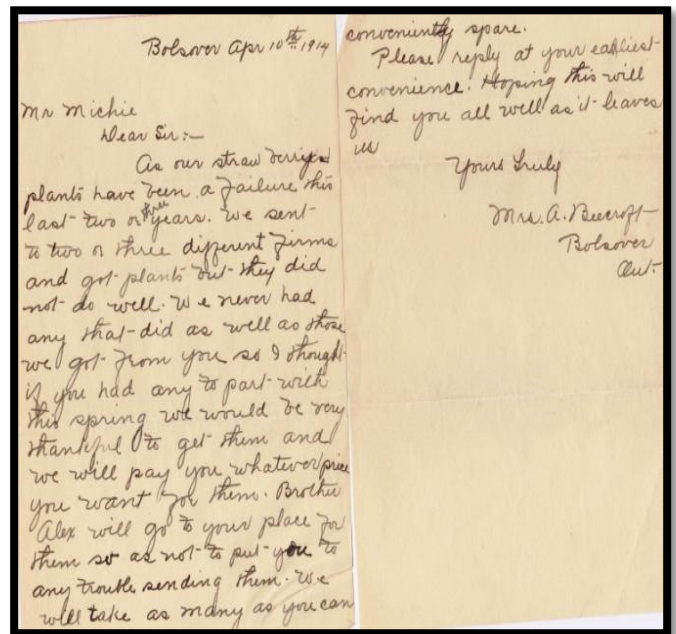 Bolsover Apr 10th 1914
Mr Michie
Dear Sir:—
As our strawberries
plants have been a failure this
last two or three years. We sent
to two or three different firms
and got plants but they did
not do well. We never had
any that did as well as those
we got from you so I thought
if you had any to part with
this spring we would be very
thankful to get them and
we will pay you whatever price
you want for them. Brother
Alex will go to your place for
them so as not to put you to
any trouble sending them. We
will take as many as you can
conveniently spare.
Please reply at your earliest
convenience. Hoping this will
find you all well as it leaves
us
Yours truly
Mrs. A. Beecroft
Bolsover
Ont.